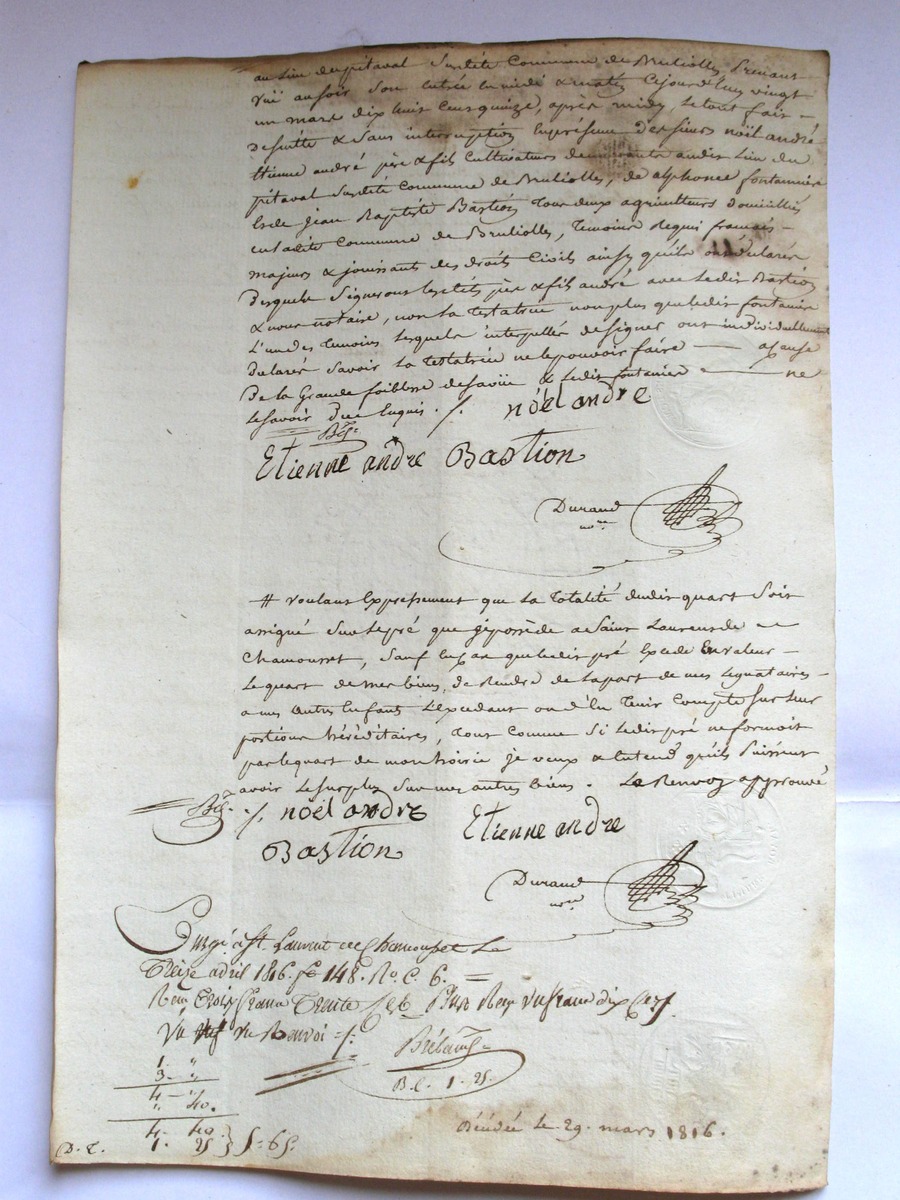 au lieu du pitaval susdite Commune de Bruliolles, Prenant
vüe au soir son entrée en midi & cejourd'huy vingt
un mars dix huit Cent quinze, après midy, Le tout fait
desuitte & sans interruption En présence des sieurs noël andré
Etienne andré père & fils Cultivateurs demeurants audit Lieu du
pitaval Susdité Commune de Bruliolles, de alphonce fontanniere
& de Jean Baptiste Bastion tous deux agriculteurs domiciliés
en ladite Commune de Bruliolles, Temoins Requis français
majeurs & jouissants des droits Civils ainsy qu'ils ont déclaré
desquels Signerons lesdits père & fils andré avec Ledit Bastion
& nous notaire, non la Testatrice non plus que ledit fontaniere
L'un des Temoins Lesquels interpellés de signer ont individuellement
declaré savoir La Testatrice ne le pouvoir faire — a cause
De la Grande foiblesse de sa vüe & Ledit fontanier — ne
Le savoir de ce Enquis. /.
noël andre
Etienne andre Bastion
Durand
nore
# voulant Expressement que La Totalité dudit quart Soit
assigné Sur le pré que je possède a Saint Laurent de
Chamousset, Sauf En Cas que ledit pré Excede En valeur
Le quart de mes biens, de Rendre de la part de mes Legataires
a mes autres Enfants L'Excedant ou d'En Tenir Compte Sur Leur
portions héréditaires, Tout Comme Si Ledit pré ne formoit
pas le quart de mon hoirie je veux & Entend qu'ils Puissent
avoir Le Surplus Sur mes autres biens. Le Renvoy approuvé
/. noël andre
Etienne andre
Bastion
Durand
nore
Enrgé à St. Laurent de Chamousset Le
Treize avril 1816. fo 148. Ro. C. 6. =
Reçu Trois francs Trente Plus Reçu un franc dix
Vû un Renvoi =/.
B.C. 1. 25.
1. "
3. "
4 — "
". 40.
4. 40.
1. 25 } 5=65
D. T.
Décédée le 29. mars 1816.